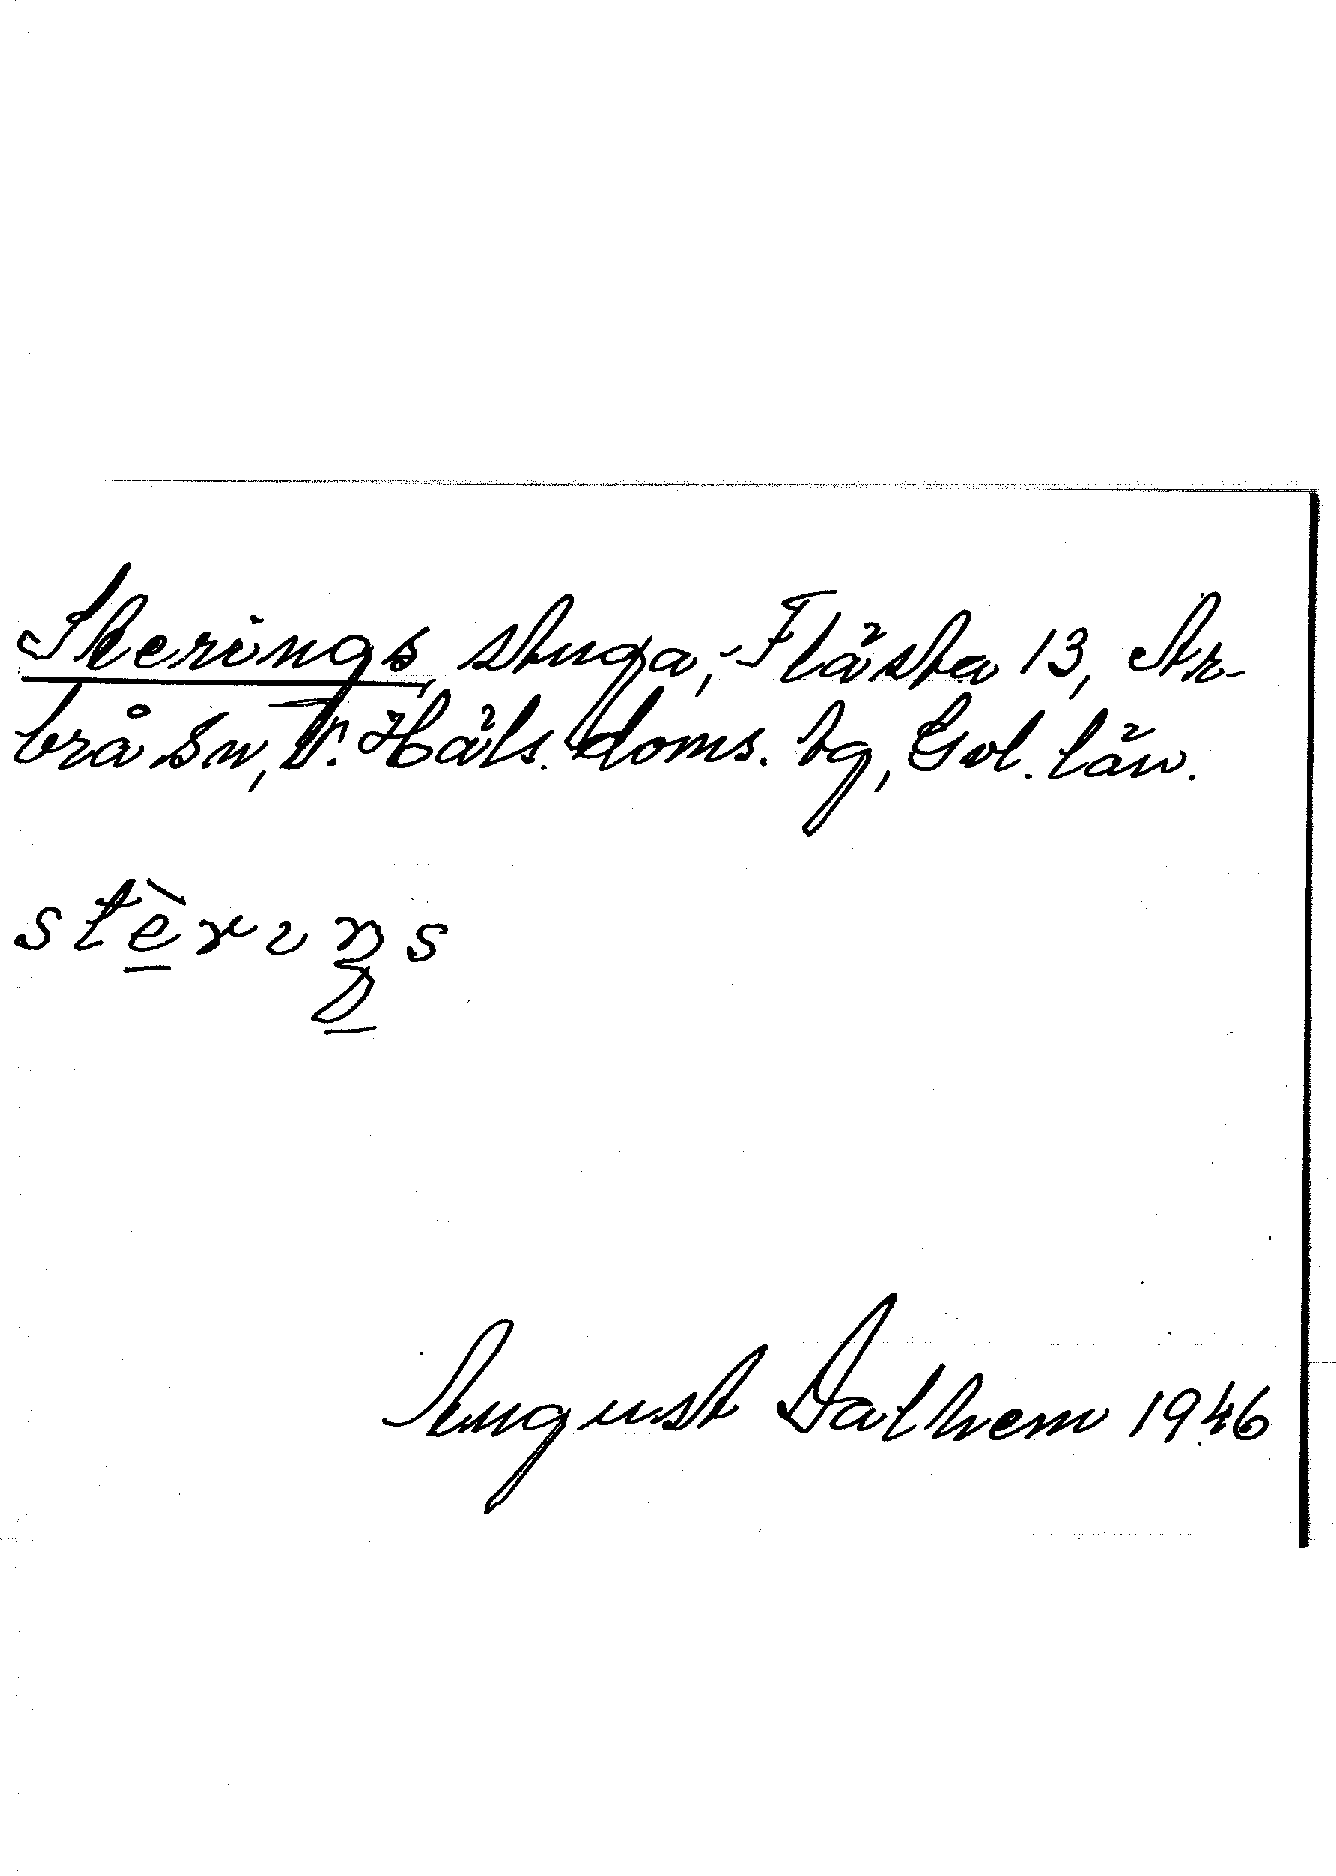 Sterings stuga, Flästa 13, Ar-
brå sn, V. Häls. doms. tg, Gvl. län.
stèrıŋs
August Dalhem 1946